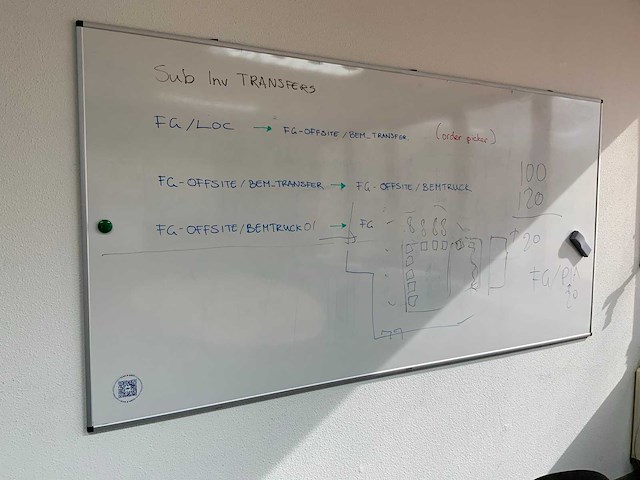 Sub Inv TRANSFERS
FG/LOC → FG-OFFSITE/BEM_TRANSFER (order picker)
FG-OFFSITE/BEM_TRANSFER → FG-OFFSITE/BEMTRUCK
FG-OFFSITE/BEMTRUCK01 → FG
8 8 8 8
100
120
20
FG/